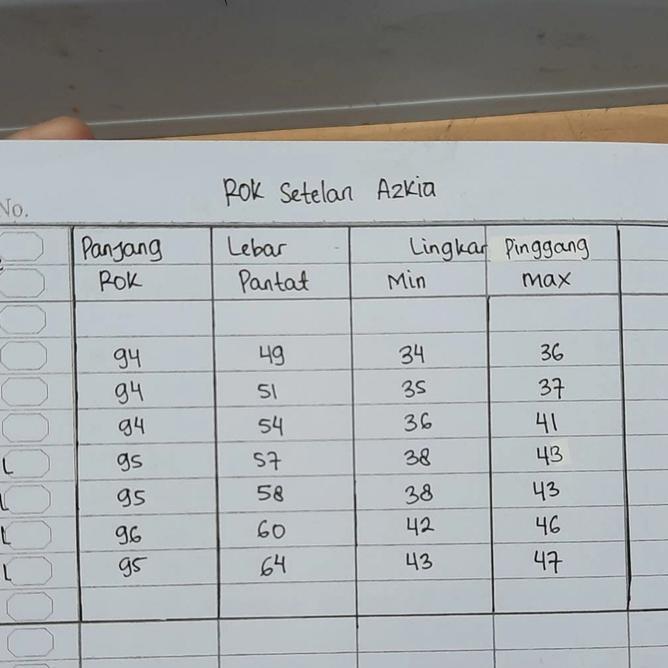 Rok Setelan Azkia
No.
Panjang Lebar Lingkar Pinggang
Rok Pantat Min max
94 49 34 36
94 51 35 37
94 54 36 41
L 95 57 38 43
L 95 58 38 43
L 96 60 42 46
L 95 64 43 47